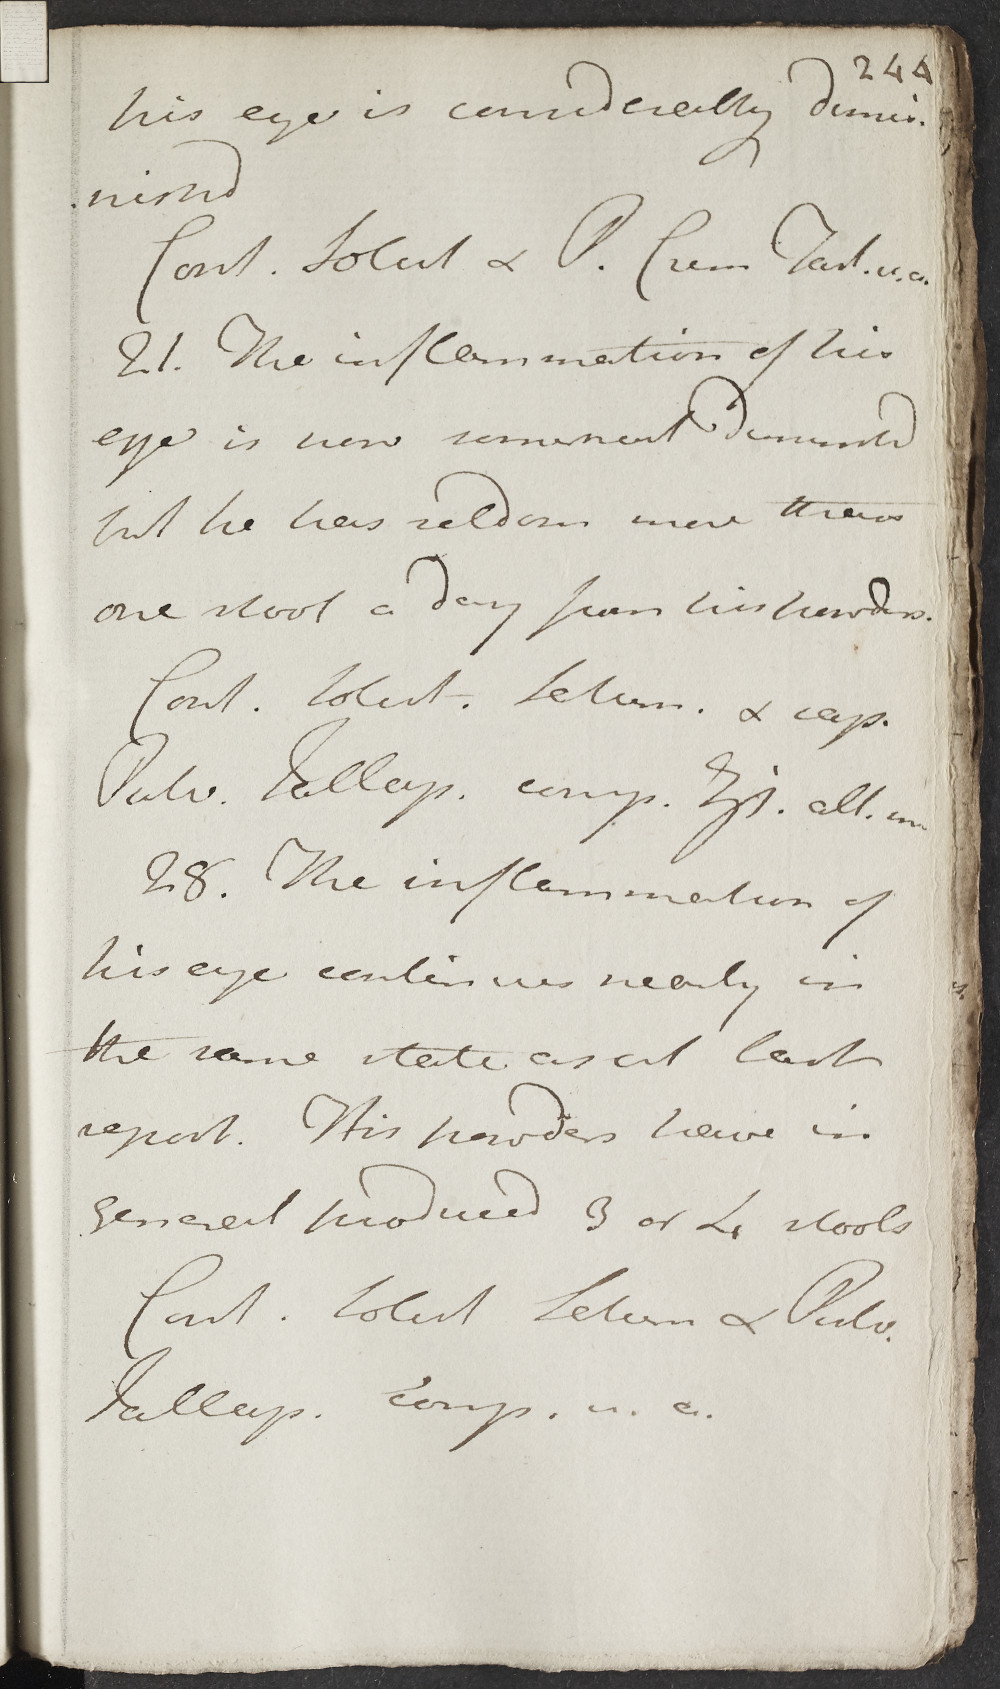 244
his eye is considerably dimi-
-nished
Cont. Solut & P. Crem Tart. u.a.
21. The inflammation of his
eye is now somewhat diminishd
but he has seldom more than
one stool a day from his powders.
Cont. Solut. Saturn. & cap.
Pulv. Jallap. comp. ʒj. alt. m
28. The inflammation of
his eye continues nearly in
the same state as at last
report. His powders have in
general produced 3 or 4 stools
Cont. Solut Saturn & Pulv.
Jallap. Comp. u. a.